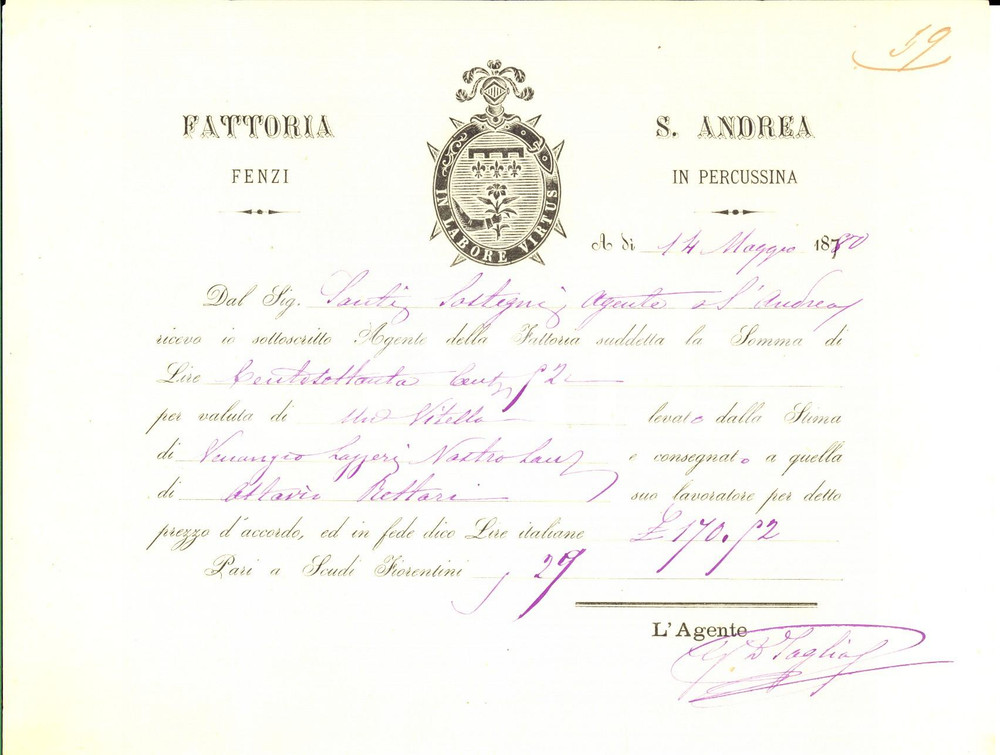 59
FATTORIA S. ANDREA
FENZI IN PERCUSSINA
IN LABORE VIRTUS
A dì 14 Maggio 1880
Dal Sig. Santi Sostegni Agente a S. Andrea
ricevo io sottoscritto Agente della Fattoria suddetta la Somma di
Lire Cent. 52
per valuta di un Vitello levato dalla Stima
di Venanzio Lazzeri Nostro e consegnato a quella
di Ottavio suo lavoratore per detto
prezzo d'accordo, ed in fede dico Lire italiane £ 170.52
Pari a Scudi Fiorentini 29
L'Agente